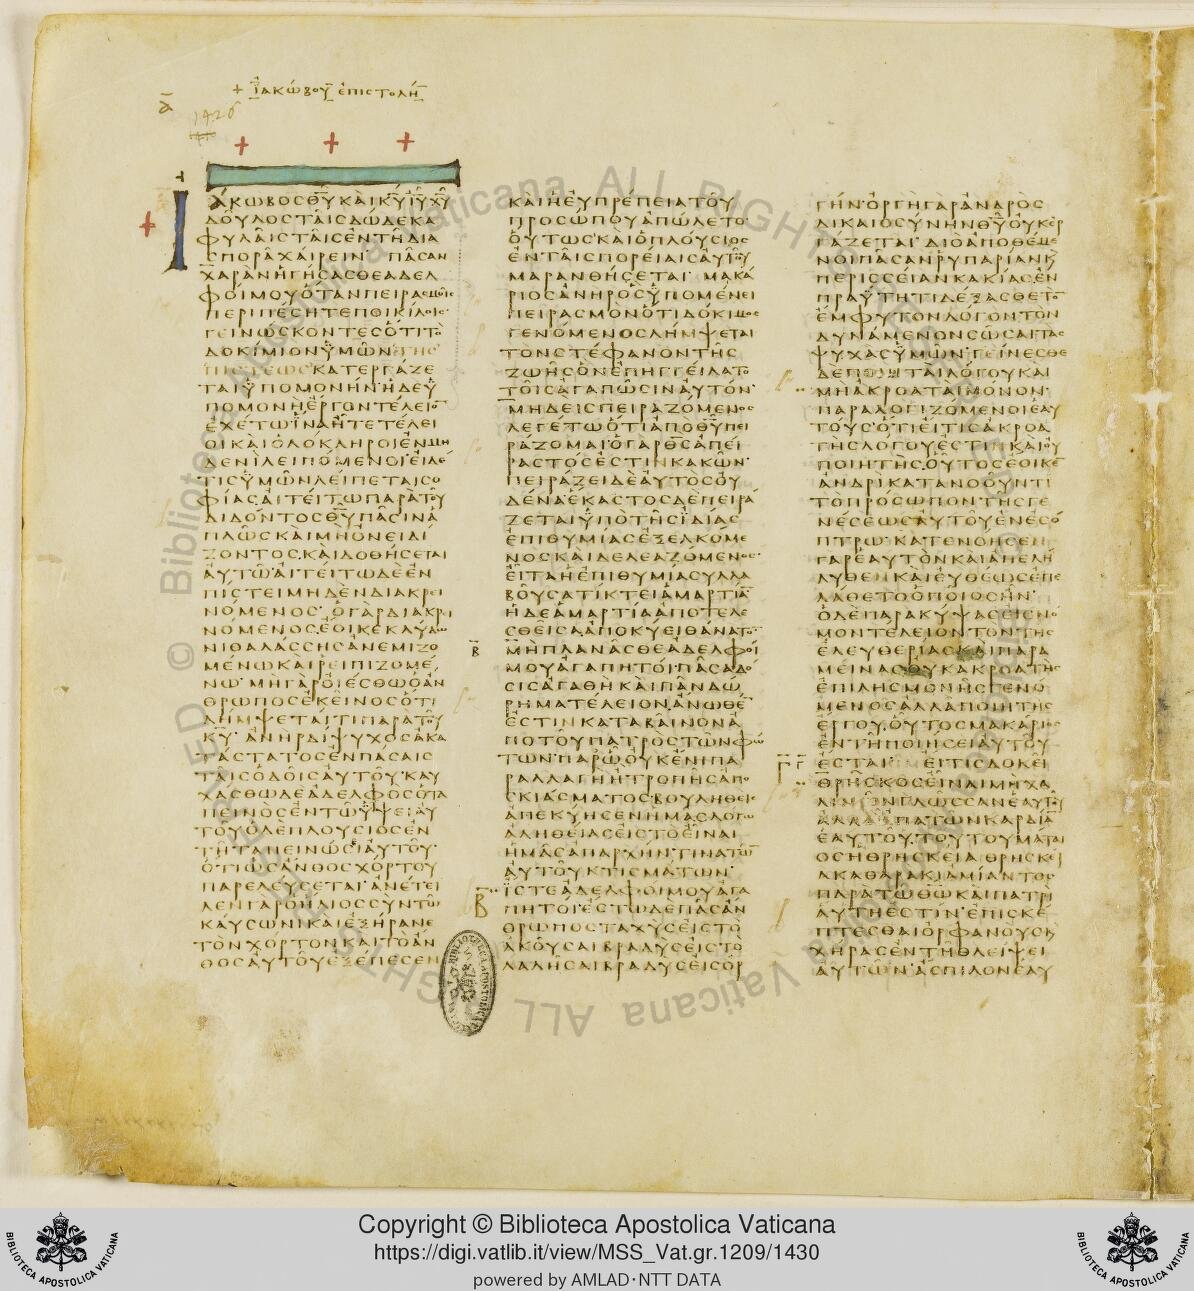 + ἸΑΚΏΒΟΥ ἘΠΙΣΤΟΛΉ
1426
ΙΑΚΩΒΟΣ ΘΥ ΚΑΙ ΚΥ ΙΥ ΧΥ
ΔΟΥΛΟΣ ΤΑΙΣ ΔΩΔΕΚΑ
ΦΥΛΑΙΣ ΤΑΙΣ ΕΝ ΤΗ ΔΙΑ
ΣΠΟΡΑ ΧΑΙΡΕΙΝ ΠΑΣΑΝ
ΧΑΡΑΝ ΗΓΗΣΑΣΘΕ ΑΔΕΛ
ΦΟΙ ΜΟΥ ΟΤΑΝ ΠΕΙΡΑΣΜΟΙΣ
ΠΕΡΙΠΕΣΗΤΕ ΠΟΙΚΙΛΟΙΣ
ΓΕΙΝΩΣΚΟΝΤΕΣ ΟΤΙ ΤΟ
ΔΟΚΙΜΙΟΝ ΥΜΩΝ ΤΗΣ
ΠΙΣΤΕΩΣ ΚΑΤΕΡΓΑΖΕ
ΤΑΙ ΥΠΟΜΟΝΗΝ Η ΔΕ Υ
ΠΟΜΟΝΗ ΕΡΓΟΝ ΤΕΛΕΙΟ
ΕΧΕΤΩ ΙΝΑ ΗΤΕ ΤΕΛΕΙ
ΟΙ ΚΑΙ ΟΛΟΚΛΗΡΟΙ ΕΝ ΜΗ
ΔΕΝΙ ΛΕΙΠΟΜΕΝΟΙ ΕΙ ΔΕ
ΤΙΣ ΥΜΩΝ ΛΕΙΠΕΤΑΙ ΣΟ
ΦΙΑΣ ΑΙΤΕΙΤΩ ΠΑΡΑ ΤΟΥ
ΔΙΔΟΝΤΟΣ ΘΥ ΠΑΣΙΝ Α
ΠΛΩΣ ΚΑΙ ΜΗ ΟΝΕΙΔΙ
ΖΟΝΤΟΣ ΚΑΙ ΔΟΘΗΣΕΤΑΙ
ΑΥΤΩ ΑΙΤΕΙΤΩ ΔΕ ΕΝ
ΠΙΣΤΕΙ ΜΗΔΕΝ ΔΙΑΚΡΕΙ
ΝΟΜΕΝΟΣ Ο ΓΑΡ ΔΙΑΚΡΙ
ΝΟΜΕΝΟΣ ΕΟΙΚΕ ΚΛΥΔΩ
ΝΙ ΘΑΛΑΣΣΗΣ ΑΝΕΜΙΖΟ
ΜΕΝΩ ΚΑΙ ΡΕΙΠΙΖΟΜΕ
ΝΩ ΜΗ ΓΑΡ ΟΙΕΣΘΩ Ο ΑΝ
ΘΡΩΠΟΣ ΕΚΕΙΝΟΣ ΟΤΙ
ΛΗΜΨΕΤΑΙ ΤΙ ΠΑΡΑ ΤΟΥ
ΚΥ ΑΝΗΡ ΔΙΨΥΧΟΣ ΑΚΑ
ΤΑΣΤΑΤΟΣ ΕΝ ΠΑΣΑΙΣ
ΤΑΙΣ ΟΔΟΙΣ ΑΥΤΟΥ ΚΑΥ
ΧΑΣΘΩ ΔΕ ΑΔΕΛΦΟΣ Ο ΤΑ
ΠΕΙΝΟΣ ΕΝ ΤΩ ΥΨΕΙ ΑΥ
ΤΟΥ Ο ΔΕ ΠΛΟΥΣΙΟΣ ΕΝ
ΤΗ ΤΑΠΕΙΝΩΣΙ ΑΥΤΟΥ
ΟΤΙ ΩΣ ΑΝΘΟΣ ΧΟΡΤΟΥ
ΠΑΡΕΛΕΥΣΕΤΑΙ ΑΝΕΤΕΙ
ΛΕΝ ΓΑΡ Ο ΗΛΙΟΣ ΣΥΝ ΤΩ
ΚΑΥΣΩΝΙ ΚΑΙ ΕΞΗΡΑΝΕ
ΤΟΝ ΧΟΡΤΟΝ ΚΑΙ ΤΟ ΑΝ
ΘΟΣ ΑΥΤΟΥ ΕΞΕΠΕΣΕΝ
ΚΑΙ Η ΕΥΠΡΕΠΕΙΑ ΤΟΥ
ΠΡΟΣΩΠΟΥ ΑΠΩΛΕΤΟ
ΟΥΤΩΣ ΚΑΙ Ο ΠΛΟΥΣΙΟΣ
ΕΝ ΤΑΙΣ ΠΟΡΕΙΑΙΣ ΑΥΤΟΥ
ΜΑΡΑΝΘΗΣΕΤΑΙ ΜΑΚΑ
ΡΙΟΣ ΑΝΗΡ ΟΣ ΥΠΟΜΕΝΕΙ
ΠΕΙΡΑΣΜΟΝ ΟΤΙ ΔΟΚΙΜΟΣ
ΓΕΝΟΜΕΝΟΣ ΛΗΜΨΕΤΑΙ
ΤΟΝ ΣΤΕΦΑΝΟΝ ΤΗΣ
ΖΩΗΣ ΟΝ ΕΠΗΓΓΕΙΛΑΤΟ
ΤΟΙΣ ΑΓΑΠΩΣΙΝ ΑΥΤΟΝ
ΜΗΔΕΙΣ ΠΕΙΡΑΖΟΜΕΝΟΣ
ΛΕΓΕΤΩ ΟΤΙ ΑΠΟ ΘΥ ΠΕΙ
ΡΑΖΟΜΑΙ Ο ΓΑΡ ΘΣ ΑΠΕΙ
ΡΑΣΤΟΣ ΕΣΤΙΝ ΚΑΚΩΝ
ΠΕΙΡΑΖΕΙ ΔΕ ΑΥΤΟΣ ΟΥ
ΔΕΝΑ ΕΚΑΣΤΟΣ ΔΕ ΠΕΙΡΑ
ΖΕΤΑΙ ΥΠΟ ΤΗΣ ΙΔΙΑΣ
ΕΠΙΘΥΜΙΑΣ ΕΞΕΛΚΟΜΕ
ΝΟΣ ΚΑΙ ΔΕΛΕΑΖΟΜΕΝΟΣ
ΕΙΤΑ Η ΕΠΙΘΥΜΙΑ ΣΥΛΛΑ
ΒΟΥΣΑ ΤΙΚΤΕΙ ΑΜΑΡΤΙΑ
Η ΔΕ ΑΜΑΡΤΙΑ ΑΠΟΤΕΛΕ
ΣΘΕΙΣΑ ΑΠΟΚΥΕΙ ΘΑΝΑΤΟ
Β
ΜΗ ΠΛΑΝΑΣΘΕ ΑΔΕΛΦΟΙ
ΜΟΥ ΑΓΑΠΗΤΟΙ ΠΑΣΑ ΔΟ
ΣΙΣ ΑΓΑΘΗ ΚΑΙ ΠΑΝ ΔΩ
ΡΗΜΑ ΤΕΛΕΙΟΝ ΑΝΩΘΕ
ΕΣΤΙΝ ΚΑΤΑΒΑΙΝΟΝ Α
ΠΟ ΤΟΥ ΠΑΤΡΟΣ ΤΩΝ ΦΩ
ΤΩΝ ΠΑΡ Ω ΟΥΚ ΕΝΙ ΠΑ
ΡΑΛΛΑΓΗ Η ΤΡΟΠΗΣ ΑΠΟ
ΣΚΙΑΣΜΑΤΟΣ ΒΟΥΛΗΘΕΙΣ
ΑΠΕΚΥΗΣΕΝ ΗΜΑΣ ΛΟΓΩ
ΑΛΗΘΕΙΑΣ ΕΙΣ ΤΟ ΕΙΝΑΙ
ΗΜΑΣ ΑΠΑΡΧΗΝ ΤΙΝΑ ΤΩ
ΑΥΤΟΥ ΚΤΙΣΜΑΤΩΝ
ΙΣΤΕ ΑΔΕΛΦΟΙ ΜΟΥ ΑΓΑ
Β
ΠΗΤΟΙ ΕΣΤΩ ΔΕ ΠΑΣ ΑΝ
ΘΡΩΠΟΣ ΤΑΧΥΣ ΕΙΣ ΤΟ
ΑΚΟΥΣΑΙ ΒΡΑΔΥΣ ΕΙΣ ΤΟ
ΛΑΛΗΣΑΙ ΒΡΑΔΥΣ ΕΙΣ ΟΡ
ΓΗΝ ΟΡΓΗ ΓΑΡ ΑΝΔΡΟΣ
ΔΙΚΑΙΟΣΥΝΗΝ ΘΥ ΟΥΚ ΕΡ
ΓΑΖΕΤΑΙ ΔΙΟ ΑΠΟΘΕΜΕ
ΝΟΙ ΠΑΣΑΝ ΡΥΠΑΡΙΑΝ Κ
ΠΕΡΙΣΣΕΙΑΝ ΚΑΚΙΑΣ ΕΝ
ΠΡΑΥΤΗΤΙ ΔΕΞΑΣΘΕ ΤΟ
ΕΜΦΥΤΟΝ ΛΟΓΟΝ ΤΟΝ
ΔΥΝΑΜΕΝΟΝ ΣΩΣΑΙ ΤΑΣ
ΨΥΧΑΣ ΥΜΩΝ ΓΕΙΝΕΣΘΕ
ΔΕ ΠΟΙΗΤΑΙ ΛΟΓΟΥ ΚΑΙ
ΜΗ ΑΚΡΟΑΤΑΙ ΜΟΝΟΝ
ΠΑΡΑΛΟΓΙΖΟΜΕΝΟΙ ΕΑΥ
ΤΟΥΣ ΟΤΙ ΕΙ ΤΙΣ ΑΚΡΟΑ
ΤΗΣ ΛΟΓΟΥ ΕΣΤΙΝ ΚΑΙ ΟΥ
ΠΟΙΗΤΗΣ ΟΥΤΟΣ ΕΟΙΚΕ
ΑΝΔΡΙ ΚΑΤΑΝΟΟΥΝΤΙ
ΤΟ ΠΡΟΣΩΠΟΝ ΤΗΣ ΓΕ
ΝΕΣΕΩΣ ΑΥΤΟΥ ΕΝ ΕΣΟ
ΠΤΡΩ ΚΑΤΕΝΟΗΣΕΝ
ΓΑΡ ΕΑΥΤΟΝ ΚΑΙ ΑΠΕΛΗ
ΛΥΘΕΝ ΚΑΙ ΕΥΘΕΩΣ ΕΠΕ
ΛΑΘΕΤΟ ΟΠΟΙΟΣ ΗΝ
Ο ΔΕ ΠΑΡΑΚΥΨΑΣ ΕΙΣ ΝΟ
ΜΟΝ ΤΕΛΕΙΟΝ ΤΟΝ ΤΗΣ
ΕΛΕΥΘΕΡΙΑΣ ΚΑΙ ΠΑΡΑ
ΜΕΙΝΑΣ ΟΥΚ ΑΚΡΟΑΤΗΣ
ΕΠΙΛΗΣΜΟΝΗΣ ΓΕΝΟ
ΜΕΝΟΣ ΑΛΛΑ ΠΟΙΗΤΗΣ
ΕΡΓΟΥ ΟΥΤΟΣ ΜΑΚΑΡΙΟΣ
ΕΝ ΤΗ ΠΟΙΗΣΕΙ ΑΥΤΟΥ
ΕΣΤΑΙ ΕΙ ΤΙΣ ΔΟΚΕΙ
ΘΡΗΣΚΟΣ ΕΙΝΑΙ ΜΗ ΧΑ
ΛΙΝΩΝ ΓΛΩΣΣΑΝ ΕΑΥΤΟΥ
ΑΛΛΑ ΑΠΑΤΩΝ ΚΑΡΔΙΑ
ΕΑΥΤΟΥ ΤΟΥΤΟΥ ΜΑΤΑΙ
ΟΣ Η ΘΡΗΣΚΕΙΑ ΘΡΗΣΚΕΙ
Α ΚΑΘΑΡΑ ΚΑΙ ΑΜΙΑΝΤΟΣ
ΠΑΡΑ ΤΩ ΘΩ ΚΑΙ ΠΑΤΡΙ
ΑΥΤΗ ΕΣΤΙΝ ΕΠΙΣΚΕ
ΠΤΕΣΘΑΙ ΟΡΦΑΝΟΥΣ Κ
ΧΗΡΑΣ ΕΝ ΤΗ ΘΛΕΙΨΕΙ
ΑΥΤΩΝ ΑΣΠΙΛΟΝ ΕΑΥ
Copyright © Biblioteca Apostolica Vaticana
https://digi.vatlib.it/view/MSS_Vat.gr.1209/1430
powered by AMLAD·NTT DATA
BIBLIOTECA APOSTOLICA VATICANA
BIBLIOTECA APOSTOLICA VATICANA